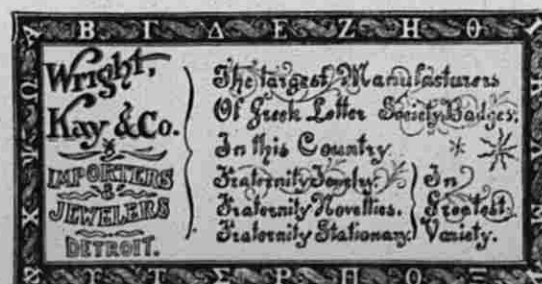 Α Β Γ Δ Ε Ζ Η Θ Ι
Wright,
Kay & Co.
IMPORTERS
&
JEWELERS
DETROIT.
The largest Manufacturers
Of Greek Letter Society Badges.
In this Country.
Fraternity Jewelry.
Fraternity Novelties.
Fraternity Stationary.
In
Greatest
Variety.
Σ Τ Σ Ρ Π Ο Ξ